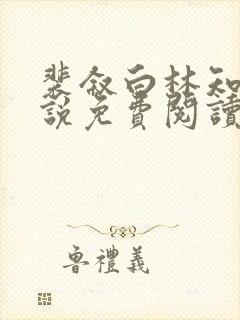 裴敘白林知
說免費閱讀
魯禮義